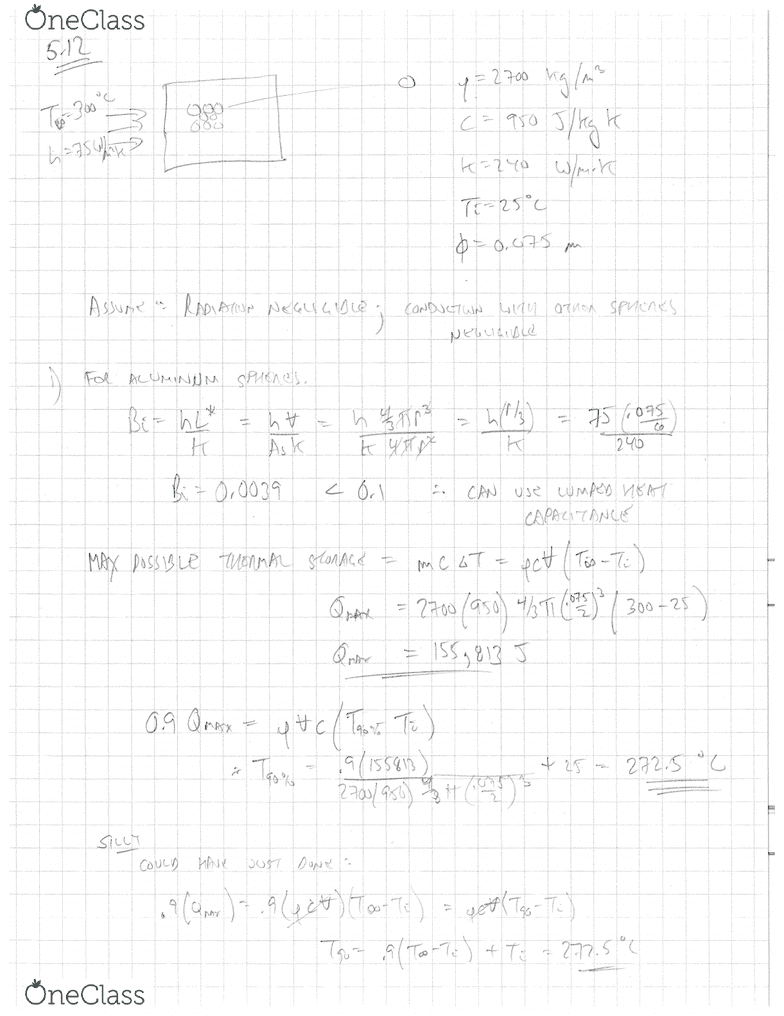 OneClass
5.12
T∞=300°C
h=75W/m²K
ρ=2700 kg/m³
C=950 J/kg K
K=240 W/m·K
Ti=25°C
φ=0.075 m
ASSUME: RADIATION NEGLIGIBLE; CONDUCTION WITH OTHER SPHERES
NEGLIGIBLE
1) FOR ALUMINUM SPHERES.
Bi = hL*/K = hV/AsK = h 4/3πr³ / K 4πr² = h(r/3)/K = 75(.075/6)/240
Bi=0.0039 < 0.1 ∴ CAN USE LUMPED HEAT
CAPACITANCE
MAX POSSIBLE THERMAL STORAGE = mCΔT = ρcV(T∞-Ti)
QMAX = 2700(950) 4/3π(.075/2)³(300-25)
QMAX = 155,813 J
0.9 QMAX = ρVC(T90%-Ti)
∴ T90% = .9(155813) / 2700(950) 4/3π(.075/2)³ + 25 = 272.5°C
SILLY
COULD HAVE JUST DONE:
.9(QMAX)=.9(ρcV)(T∞-Ti) = ρcV(T90-Ti)
T90= .9(T∞-Ti) + Ti = 272.5°C
OneClass